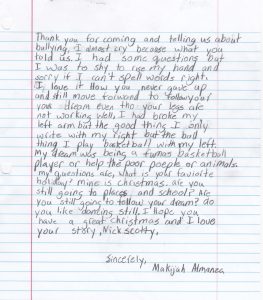 Thank you for coming and telling us about
bullying. I almost cry because what you
told us. I had some questions but
I was to shy to rise my hand and
sorry if I can't spell words right.
I love it How you never gave up
and still move forward to follow your
your dream even tho your legs are
not working well. I had broke my
left arm but the good thing I only
write with my right but the bull
thing I play basketball with my left.
My dream was being a fumas basketball
player or help the poor people or animals.
my questions are, what is your faviorite
holiday? mine is christmas. are you
still going to places and school? Are
you still going to follow your dream? do
you like dancing still. I Hope you
have a great christmas and I love
your story, Nick scotty.
Sincerely,
Makijah Almanza